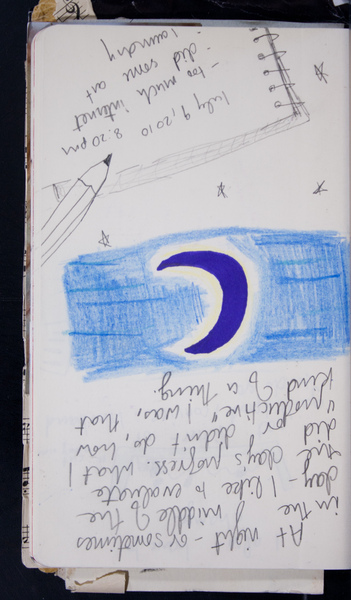 July 9, 2010 8:20pm
- too much internet
- did some art
- laundry
At night - or sometimes
in the middle of the
day - I like to evaluate
the day's progress. What I
did or didn't do, how
"productive" I was, that
kind of a thing.